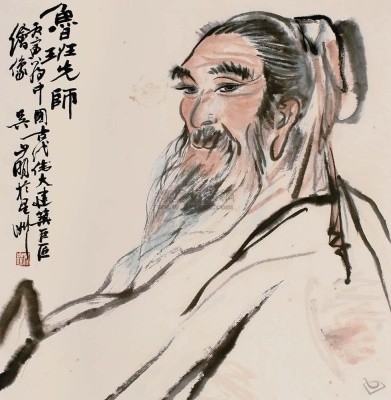 魯班先師
丙寅為中國古代偉大建築巨匠
繪像 吳山明於星洲